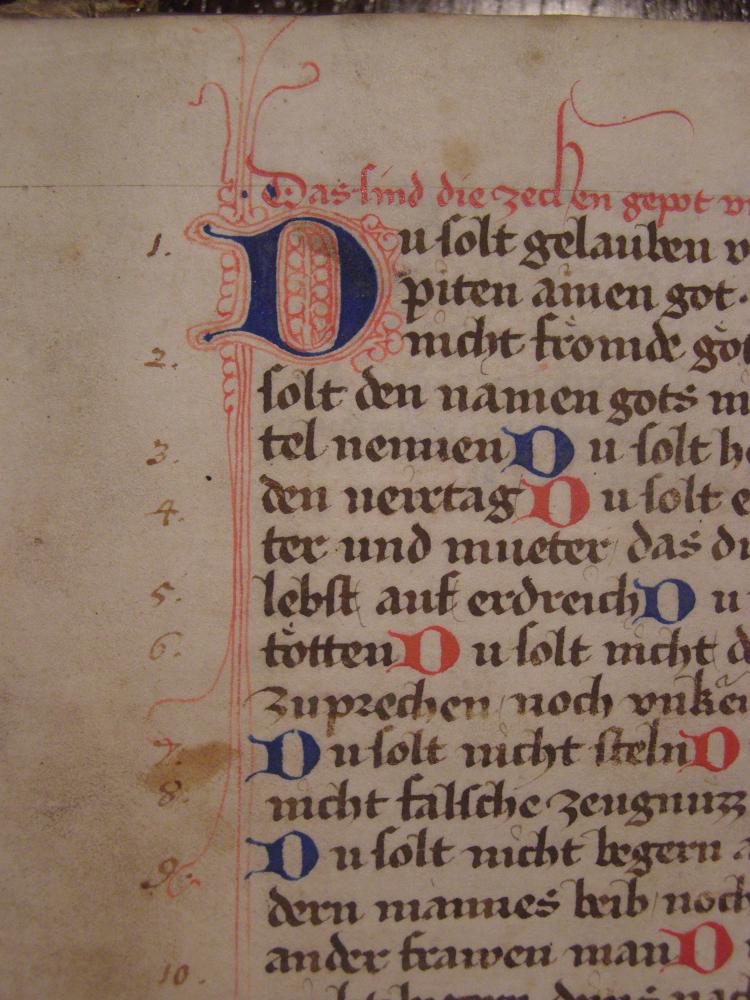 Das sind die zechen gepot
1. Du solt gelauben
piten ainen got.
2. nicht frömde
solt den namen gots
tel nennen Du solt
3. den veirtag Du solt
4. ter und mueter das
5. lebst auf erdreich Du
6. tötten Du solt nicht
zuprechen noch
7. Du solt nicht steln D
8. nicht falsche zeugnuzz
9. Du solt nicht begern
dern mannes beib noch
10. ander frawen man D